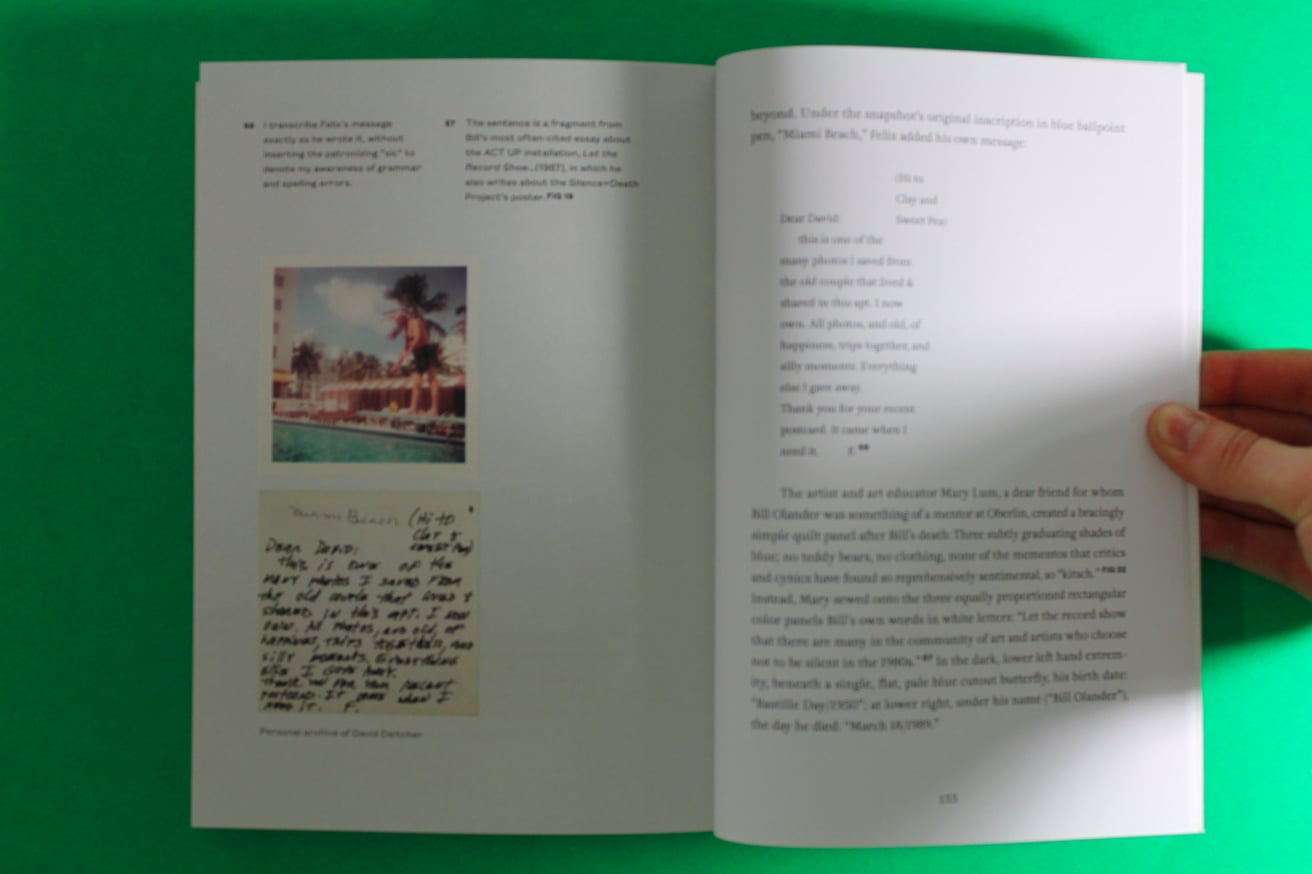 56 I transcribe Felix's message
exactly as he wrote it, without
inserting the patronizing "sic" to
denote my awareness of grammar
and spelling errors.
57 The sentence is a fragment from
Bill's most often-cited essay about
the ACT UP installation, Let the
Record Show...(1987), in which he
also writes about the Silence=Death
Project's poster. FIG 19
Miami Beach (Hi to
Clay &
Sweet Pea)
Dear David:
this is one of the
many photos I saved from
the old couple that lived &
shared in this apt. I now
own. All photos, and old, of
happiness, trips together, and
silly moments. Everything
else I gave away.
Thank you for your recent
postcard. It came when I
need it. F.
Personal archive of David Deitcher
beyond. Under the snapshot's original inscription in blue ballpoint
pen, "Miami Beach," Felix added his own message:
(Hi to
Clay and
Dear David: Sweet Pea)
this is one of the
many photos I saved from
the old couple that lived &
shared in this apt. I now
own. All photos, and old, of
happiness, trips together, and
silly moments. Everything
else I gave away.
Thank you for your recent
postcard. It came when I
need it. F. 56
The artist and art educator Mary Lum, a dear friend for whom
Bill Olander was something of a mentor at Oberlin, created a bracingly
simple quilt panel after Bill's death: Three subtly graduating shades of
blue; no teddy bears, no clothing, none of the mementos that critics
and cynics have found so reprehensively sentimental, so "kitsch." FIG 22
Instead, Mary sewed onto the three equally proportioned rectangular
color panels Bill's own words in white letters: "Let the record show
that there are many in the community of art and artists who choose
not to be silent in the 1980s." 57 In the dark, lower left hand extrem-
ity, beneath a single, flat, pale blue cutout butterfly, his birth date:
"Bastille Day/1950"; at lower right, under his name ("Bill Olander"),
the day he died: "March 18/1989."
155